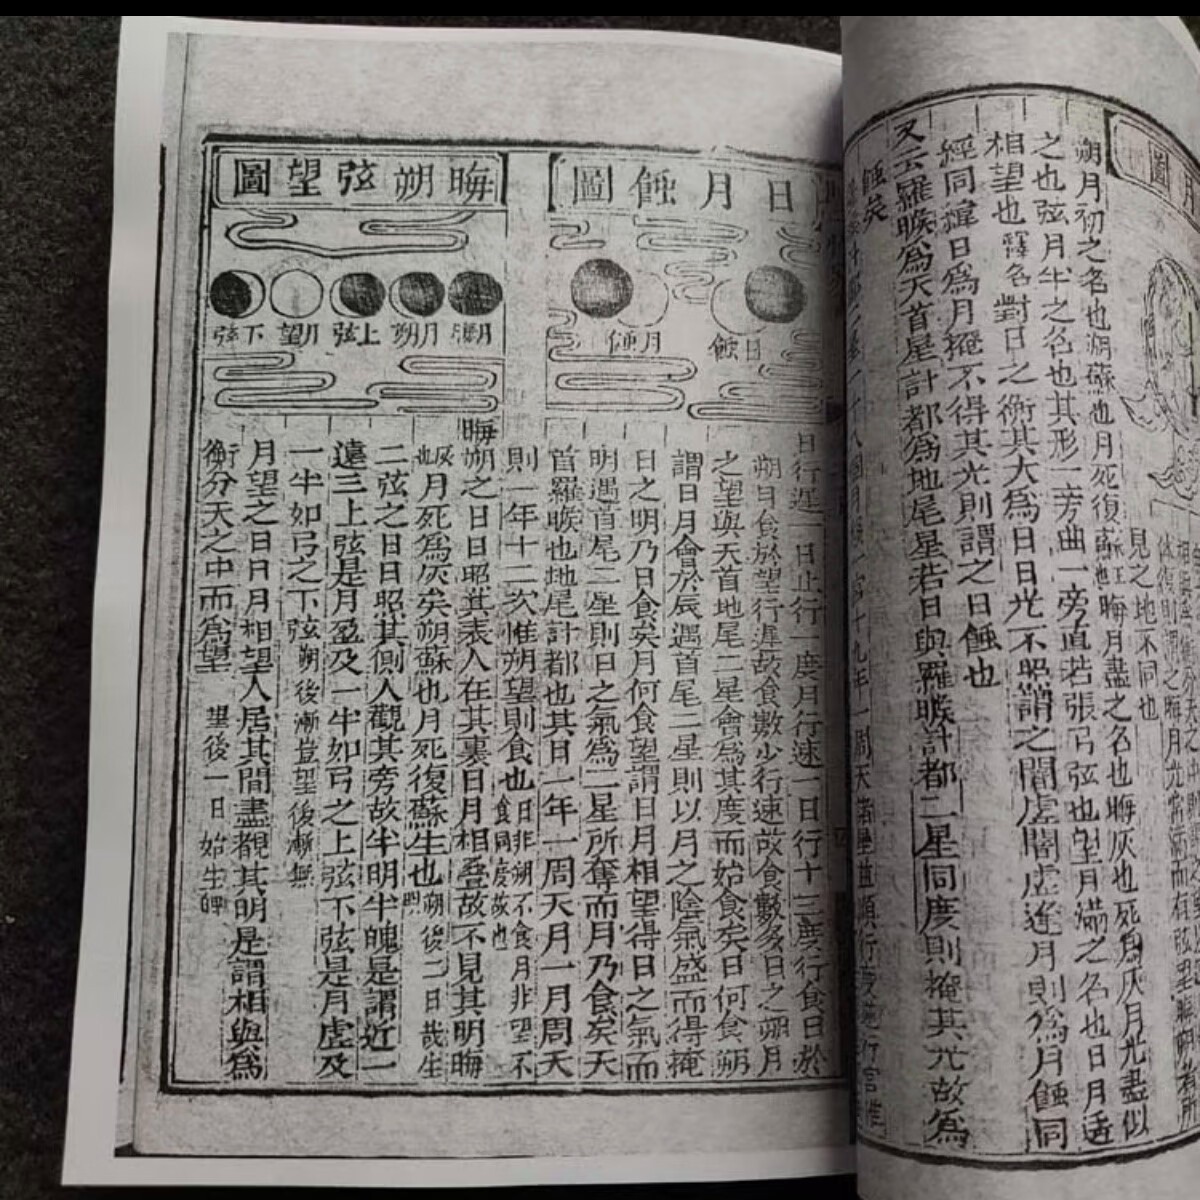 圖
見之地不同也
朔月初之名也朔蘇也月死復蘇生也晦月盡之名也晦灰也死爲灰月光盡似
之也弦月半之名也其形一旁曲一旁直若張弓弦也望月滿之名也日月遙
相望也釋名對日之衝其大爲日日光不照謂之闇虛闇虛逢月則爲月蝕同
經同緯日爲月掩不得其光則謂之日蝕也
又云羅睺爲天首星計都爲地尾星若日與羅睺計都二星同度則掩其光故爲
蝕矣
日月蝕圖
日蝕
月蝕
日行遲一日止行一度月行速一日行十三度行食日於
朔日食於望行遲故食數少行速故食數多日之朔月
之望與天首地尾二星會爲其度而始食矣日何食朔
謂日月會於辰遇首尾二星則以月之陰氣盛而得掩
日之明乃日食矣月何食望謂日月相望得日之氣而
明遇首尾二星則日之氣爲二星所奪而月乃食矣天
首羅睺也地尾計都也其日一年一周天月一月周天
則一年十二次惟朔望則食也日非朔不食月非望不
食同度故也
晦朔弦望圖
月晦
月朔
上弦
月望
下弦
晦
朔之日日昭其表人在其裏日月相疊故不見其明晦
灰也月死爲灰矣朔蘇也月死復蘇生也朔後二日哉生明
二弦之日日照其側人觀其旁故半明半魄是謂近一
遠三上弦是月盈及一半如弓之上弦下弦是月虛及
一半如弓之下弦朔後漸豈望後漸無
月望之日日月相望人居其間盡覩其明是謂相與爲
衡分天之中而爲望望後一日始生魄